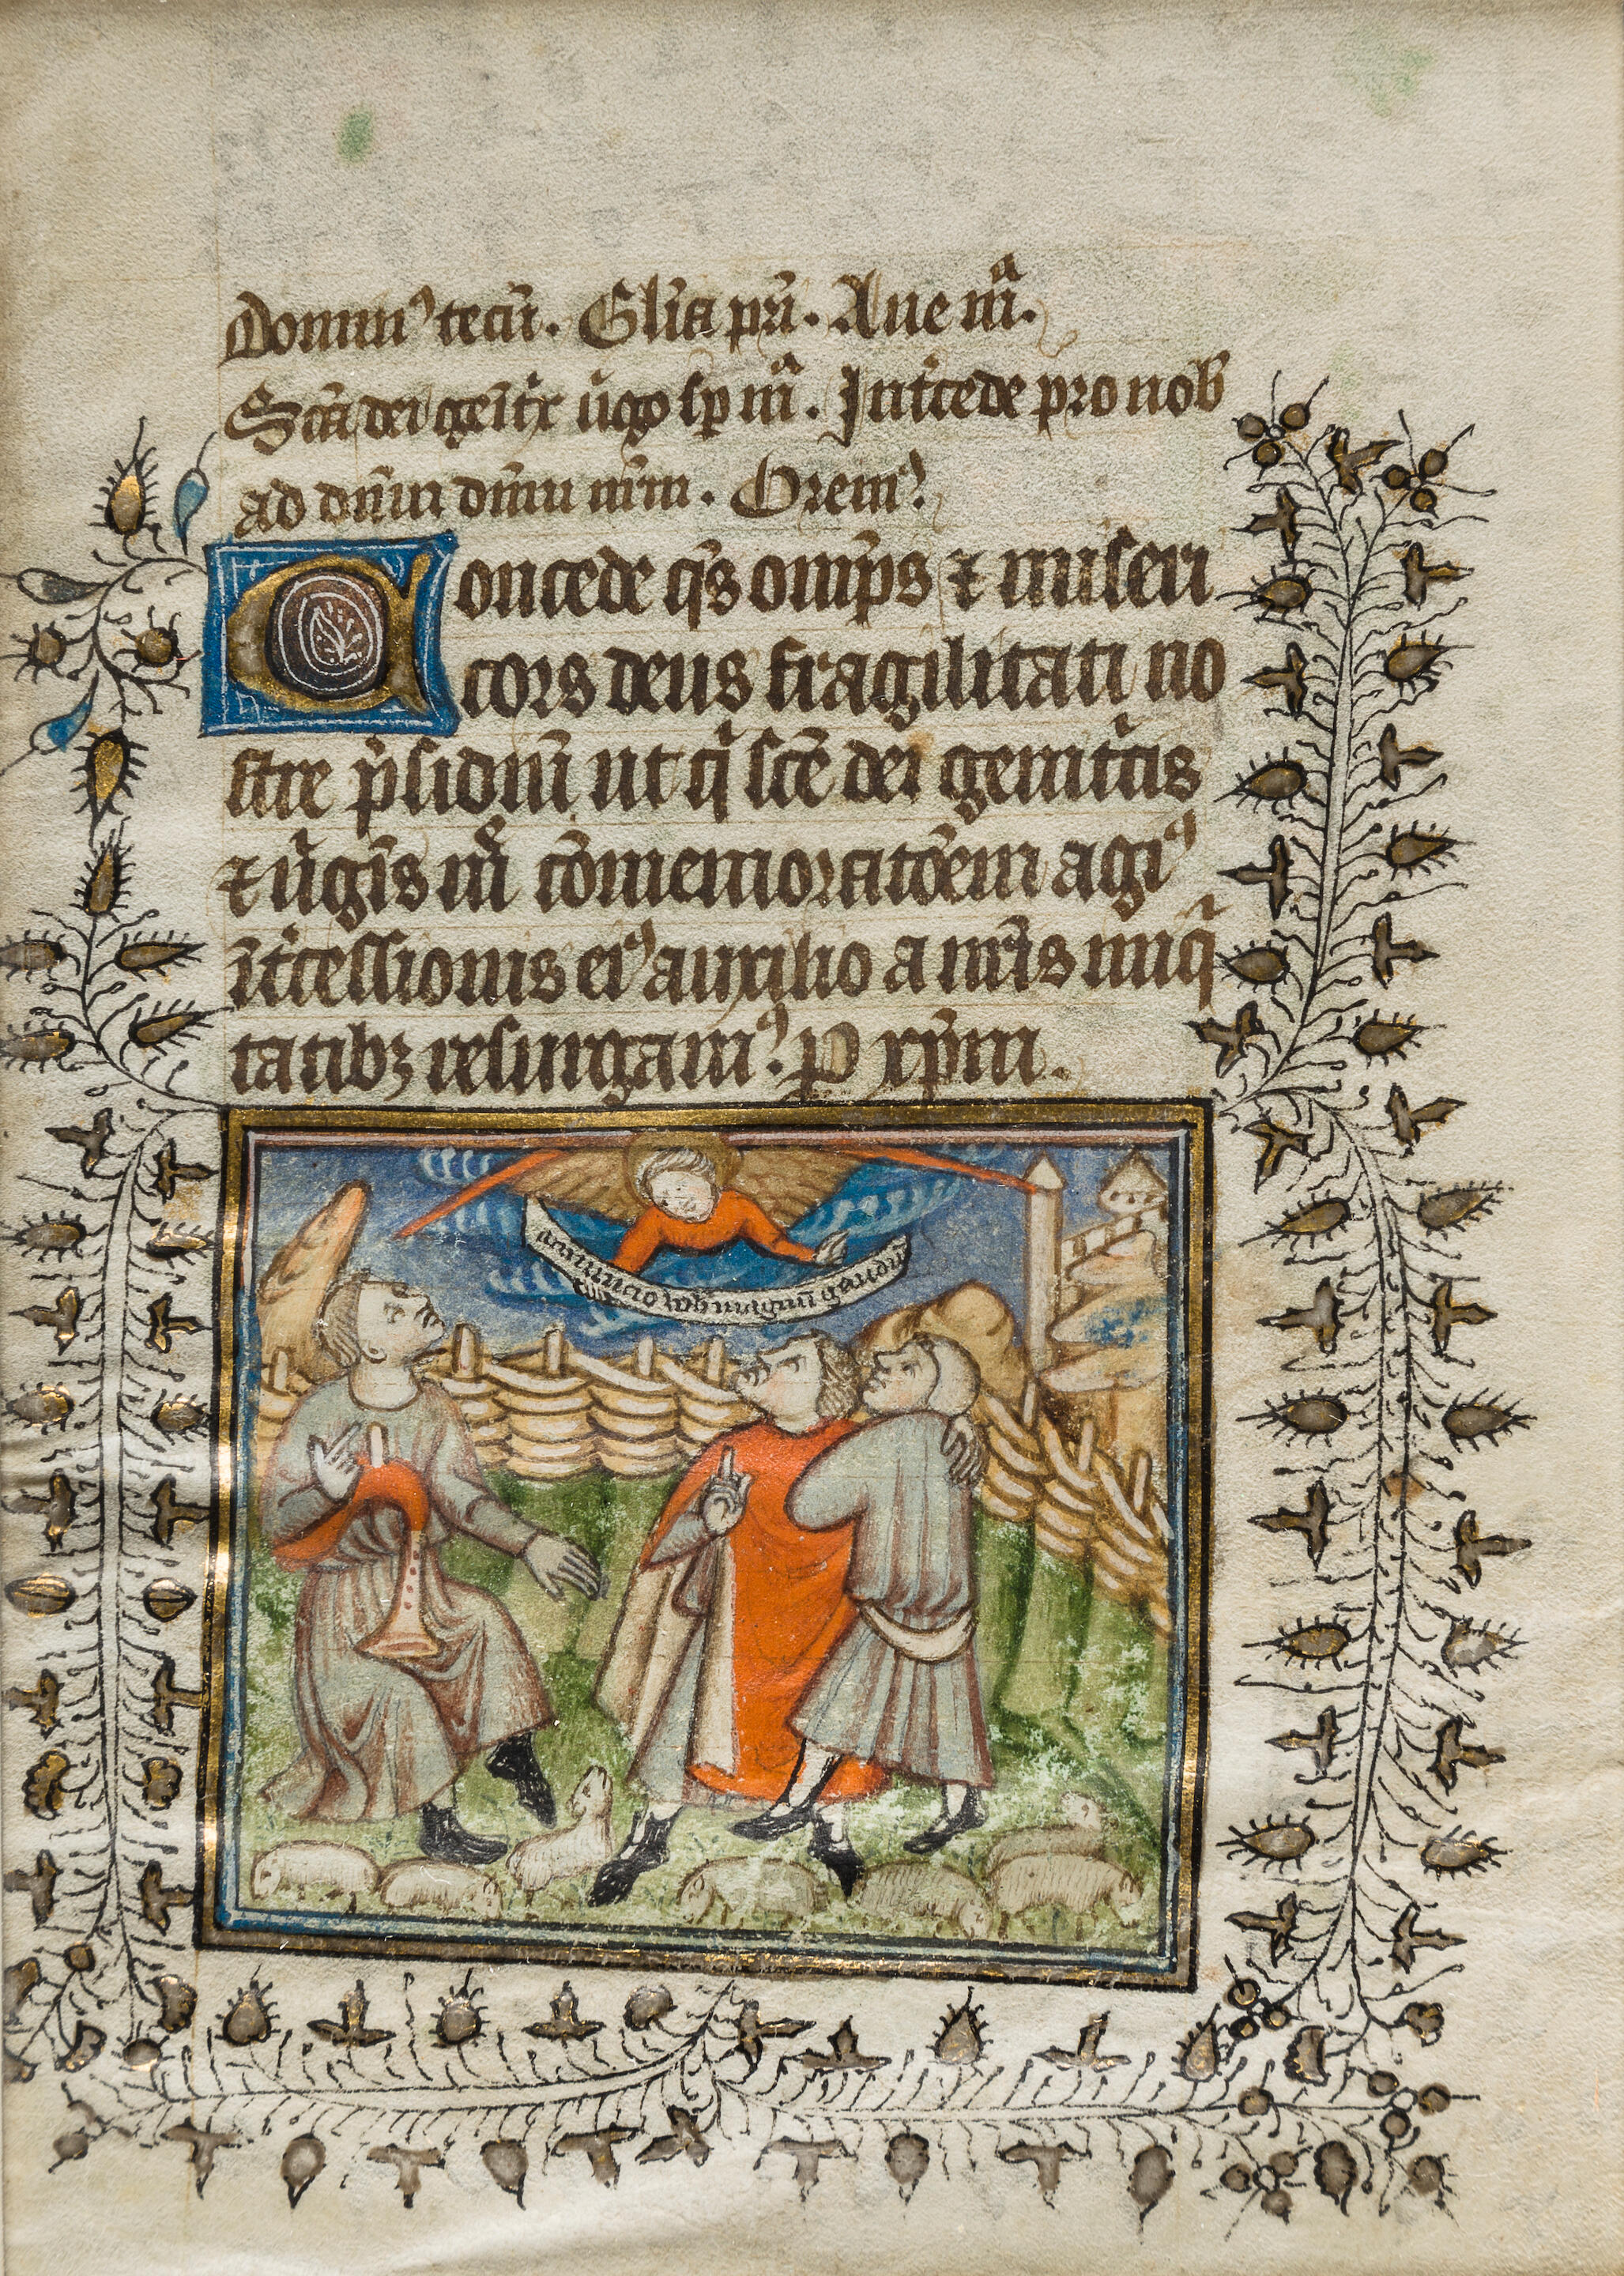 Domin⁹ tecū. Gl̄ia pr̄i. Aue mͣ.
Sc̄a dei geīt̾x ūgo sꝑ mͣ. Int̾cede pro nob̄
ad dn̄m dm̄u nr̄m. Orem⁹
Concede qs̄ omp̄s ⁊ miseri
cors deus fragilitati no
stre p̾sidiū ut qͥ sc̄e dei genitͥcis
⁊ ūgīs mͤ cōmemoratōem agi⁹
īt̾cessionis ei⁹ auxilio a nr̄is iniqͥ
tatibꝫ resurgam⁹. P xp̄m.
annuncio vob̄ magnū gaudiū